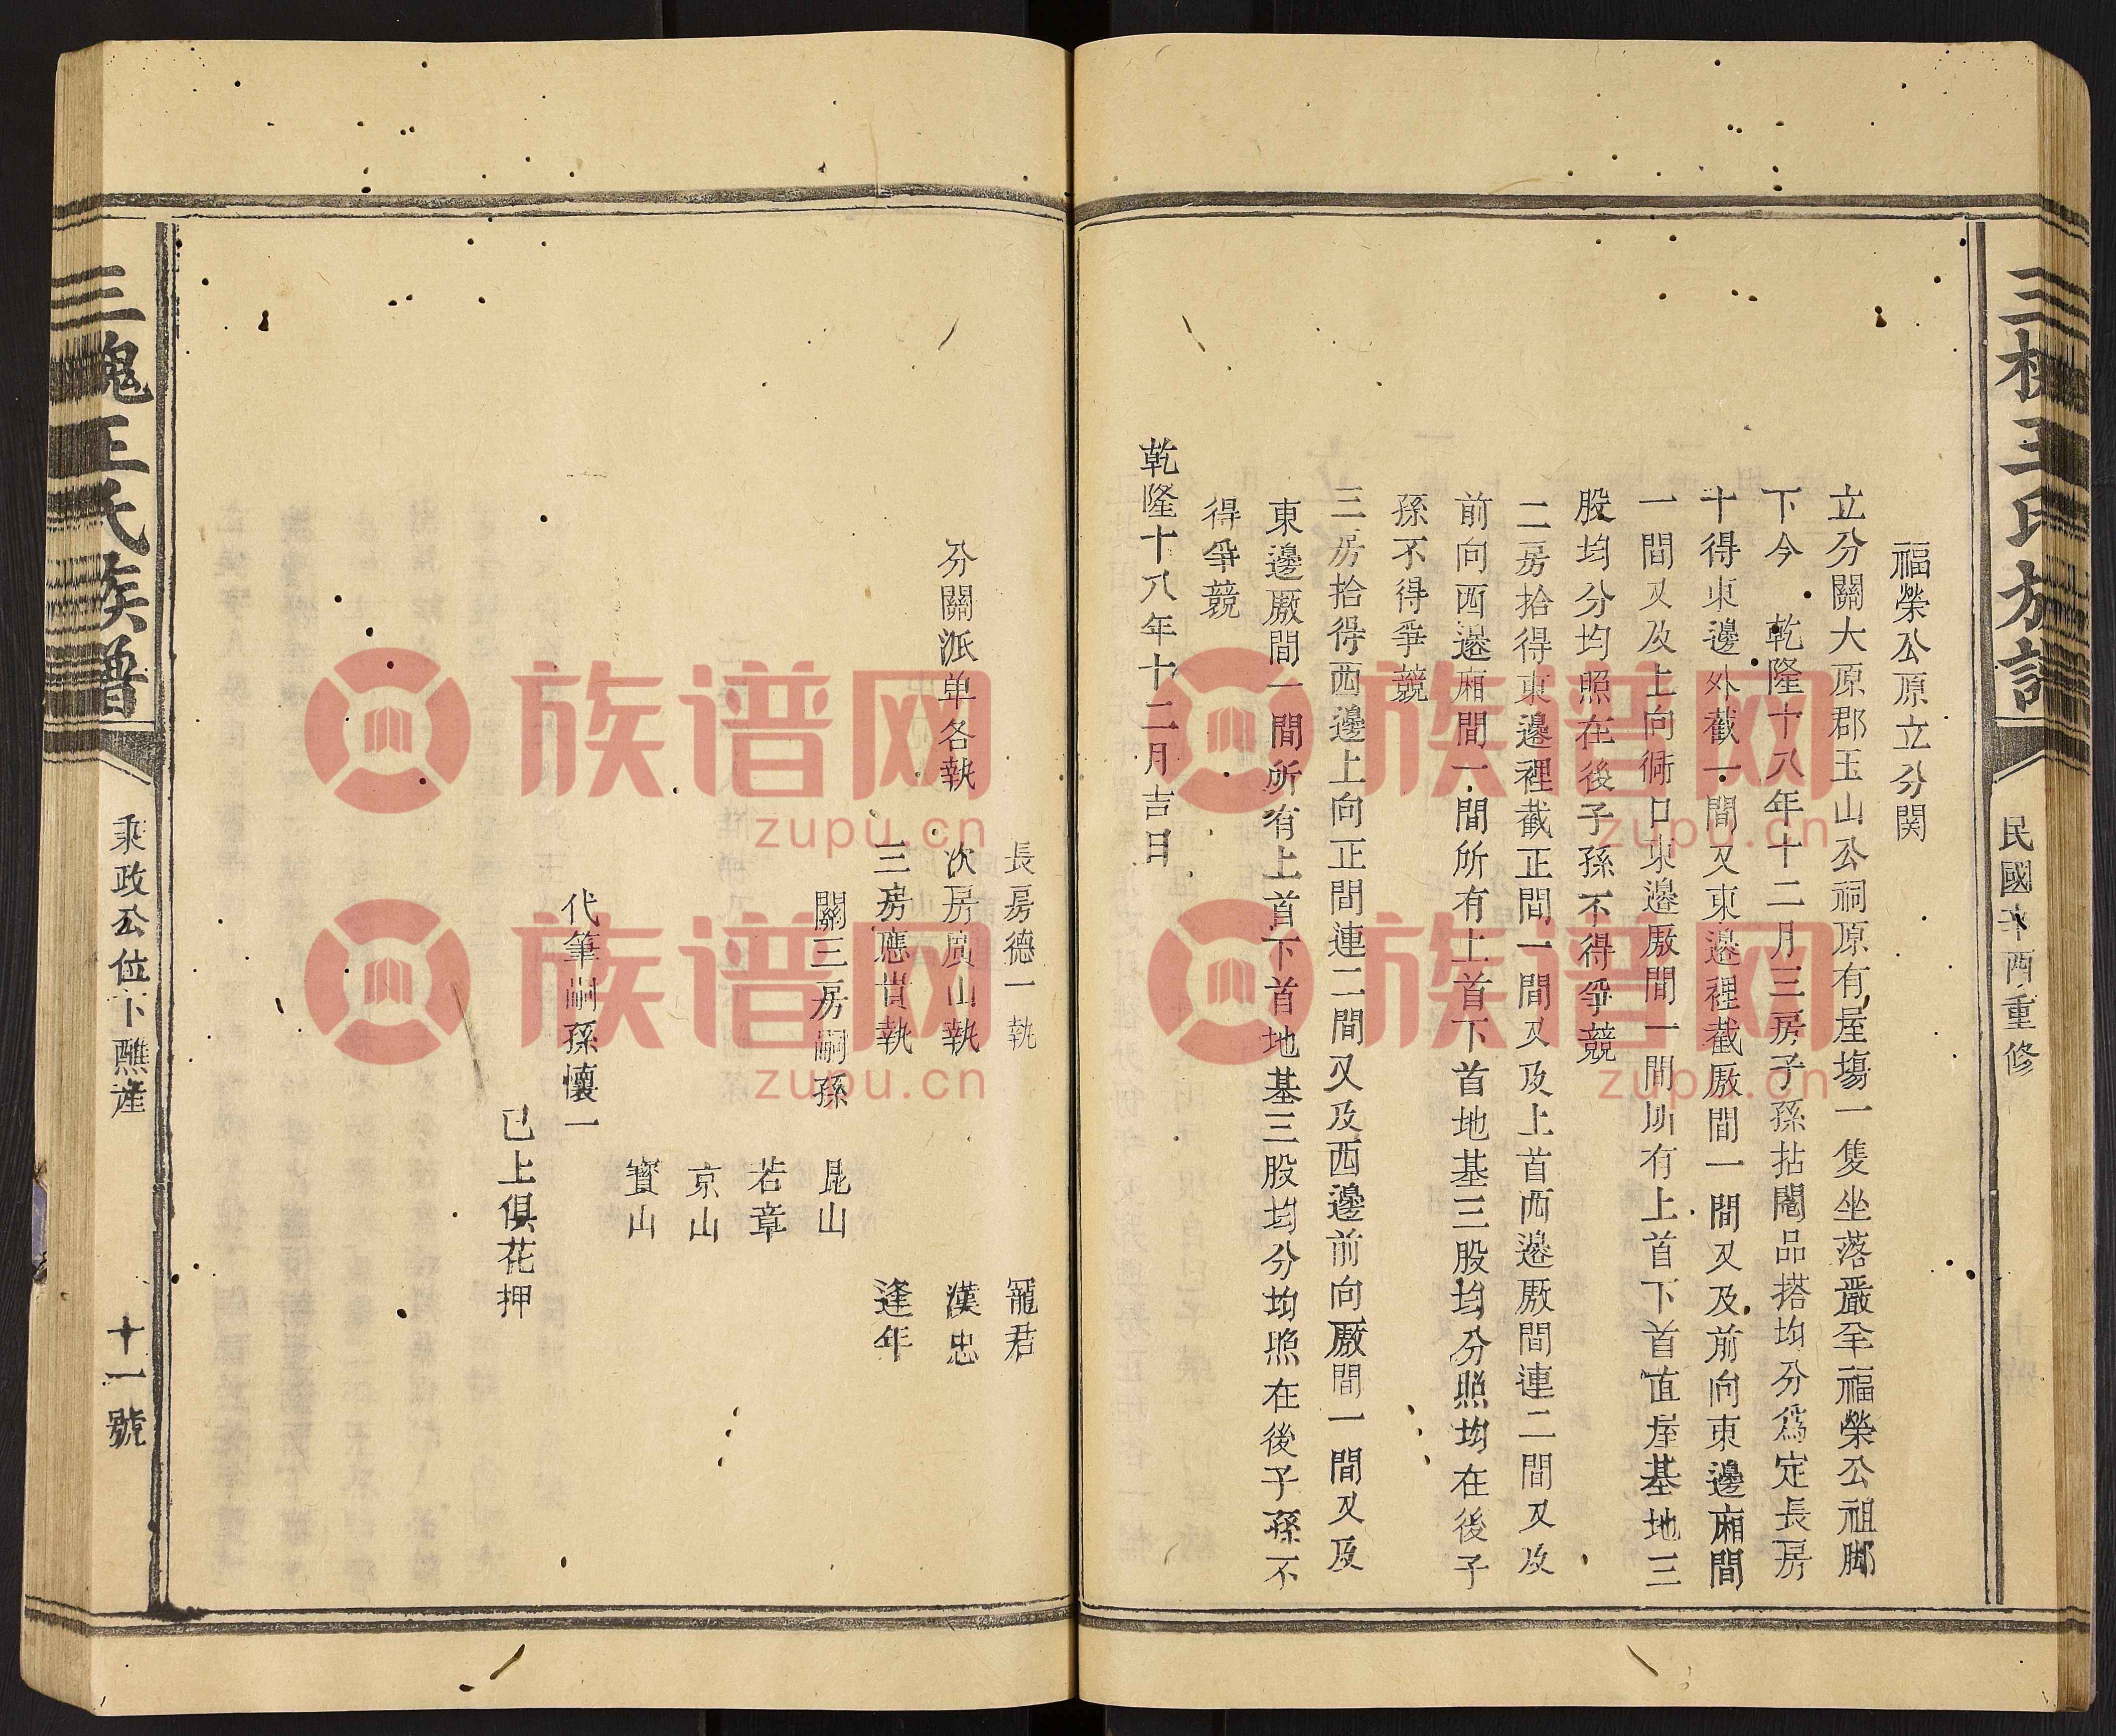 三槐王氏族譜
民國辛酉重修
福榮公原立分関
立分關大原郡玉山公祠原有屋塲一隻坐落嚴㘴福榮公祖脚
下今 乾隆十八年十二月三房子孫拈鬮品搭均分爲定長房
十得東邊外截一間又東邊裡截厫間一間又及前向東邊廂間
一間又及上向衕口東邊厫間一間所有上首下首直屋基地三
股均分均照在後子孫不得爭競
二房拾得東邊裡截正間一間又及上首西邊厫間連二間又及
前向西邊廂間一間所有上首下首地基三股均分照均在後子
孫不得爭競
三房拾得西邊上向正間連二間又及西邊前向厫間一間又及
東邊厫間一間所有上首下首地基三股均分均照在後子孫不
得爭競
乾隆十八年十二月吉日
長房德一執 寵君
分關派单各執 次房廣山執 漢忠
三房應世執 逢年
關三房嗣孫 昆山
若章
京山
寳山
代筆嗣孫懷一
已上俱花押
三槐王氏族譜
秉政公位下醮產
十一號
族谱网
zupu.cn
族谱网
zupu.cn
族谱网
zupu.cn
族谱网
zupu.cn